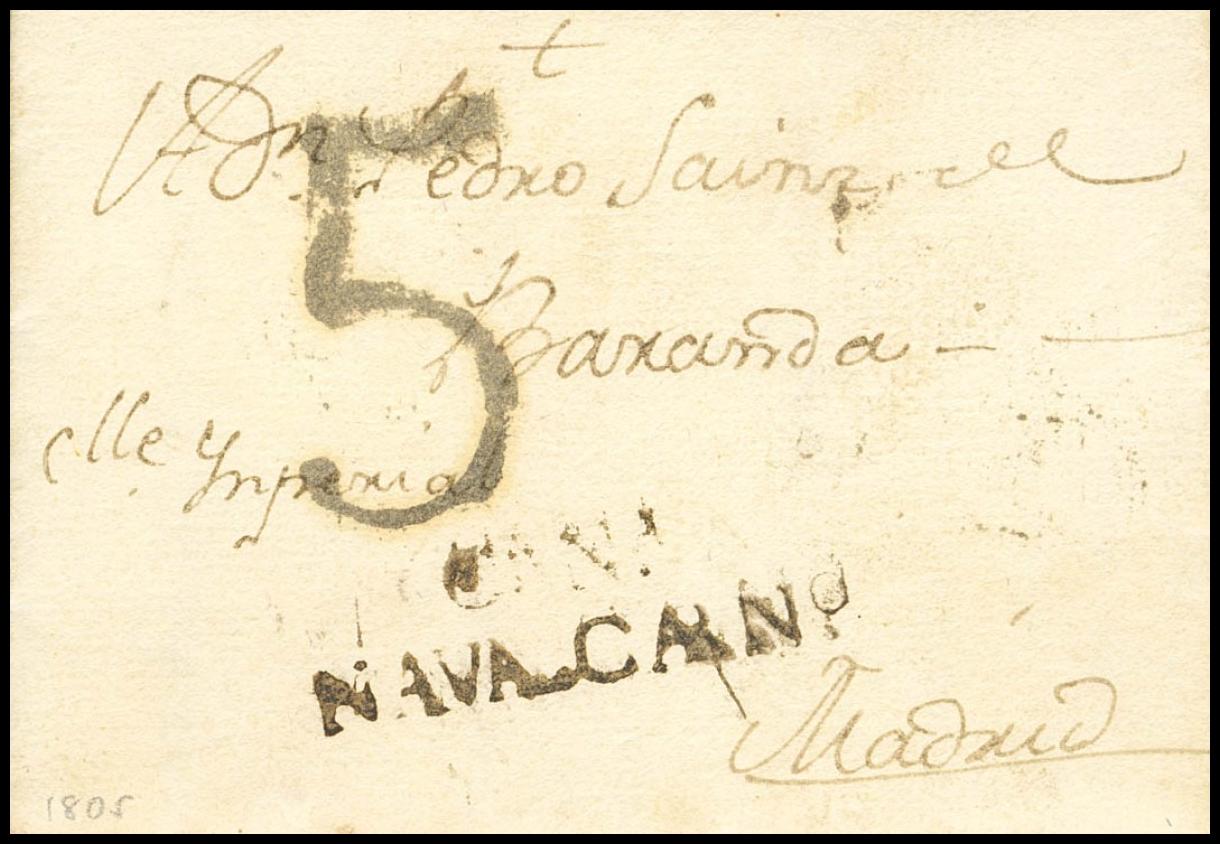 †
A Dn Pedro Sainz de
Baranda –
5
Clle Ynperial
NAVALCARNo
Madrid
1805